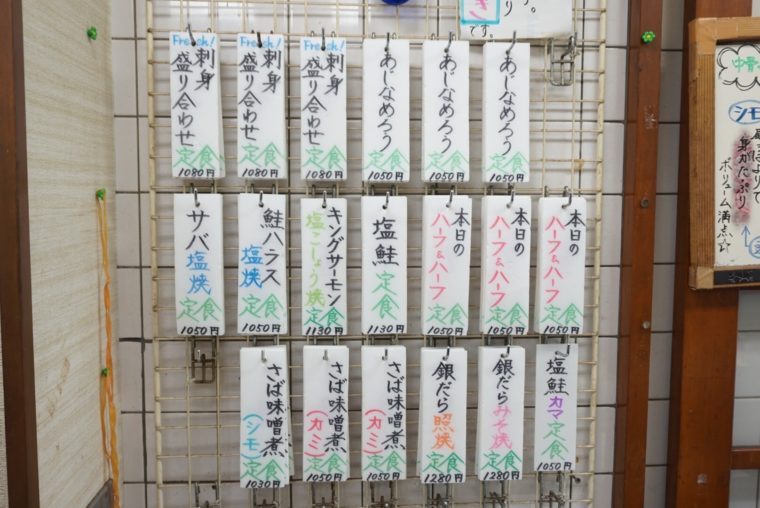 Fresh!
刺身
盛り合わせ
定食
1080円
Fresh!
刺身
盛り合わせ
定食
1080円
Fresh!
刺身
盛り合わせ
定食
1080円
あじなめろう
定食
1050円
あじなめろう
定食
1050円
あじなめろう
定食
1050円
サバ塩焼
定食
1050円
鮭ハラス
塩焼
定食
1050円
キングサーモン
塩こしょう焼
定食
1130円
塩鮭
定食
1130円
本日の
ハーフ&ハーフ
定食
1050円
本日の
ハーフ&ハーフ
定食
1050円
本日の
ハーフ&ハーフ
定食
1050円
さば味噌煮
(シモ)定食
1030円
さば味噌煮
(カミ)
定食
1050円
さば味噌煮
(カミ)
定食
1050円
銀だら
照焼
定食
1280円
銀だらみそ焼
定食
1280円
塩鮭カマ定食
1050円
です。
中骨
シモ
身がたぷり
ボリューム満点☆